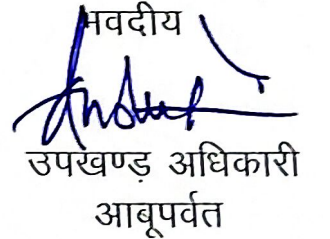 भवदीय
उपखण्ड अधिकारी
आबूपर्वत